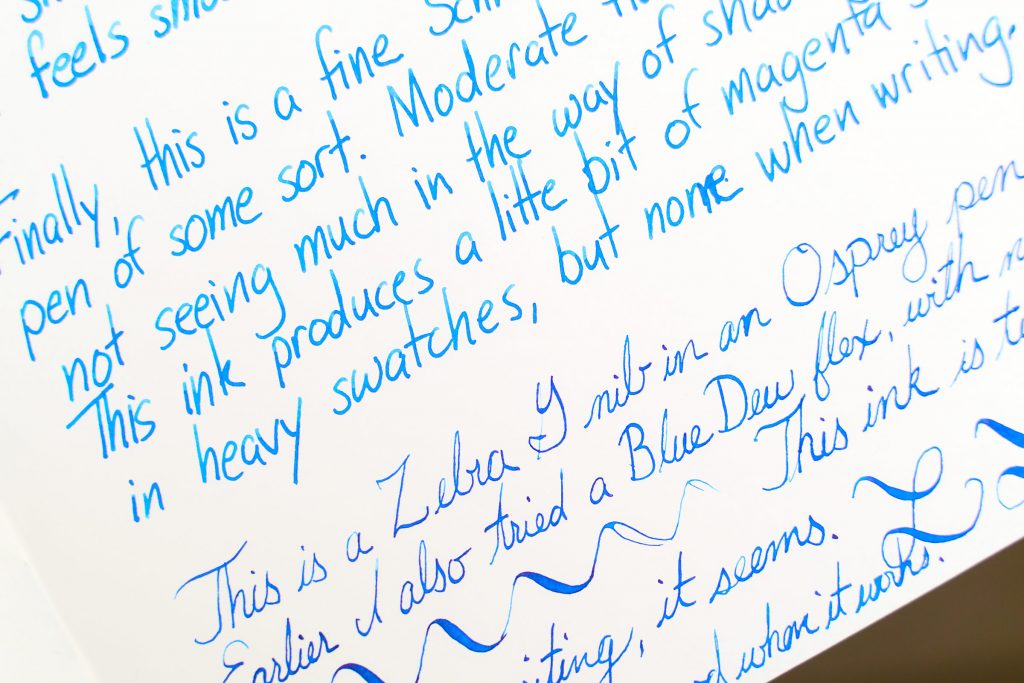 feels
Finally, this is a fine
pen of some sort. Moderate
not seeing much in the way of
This ink produces a litte bit of magenta
in heavy swatches, but none when writing.
This is a Zebra G nib in an Osprey pen
Earlier I also tried a Blue Dew flex, with
This ink is
it seems.
when it works.